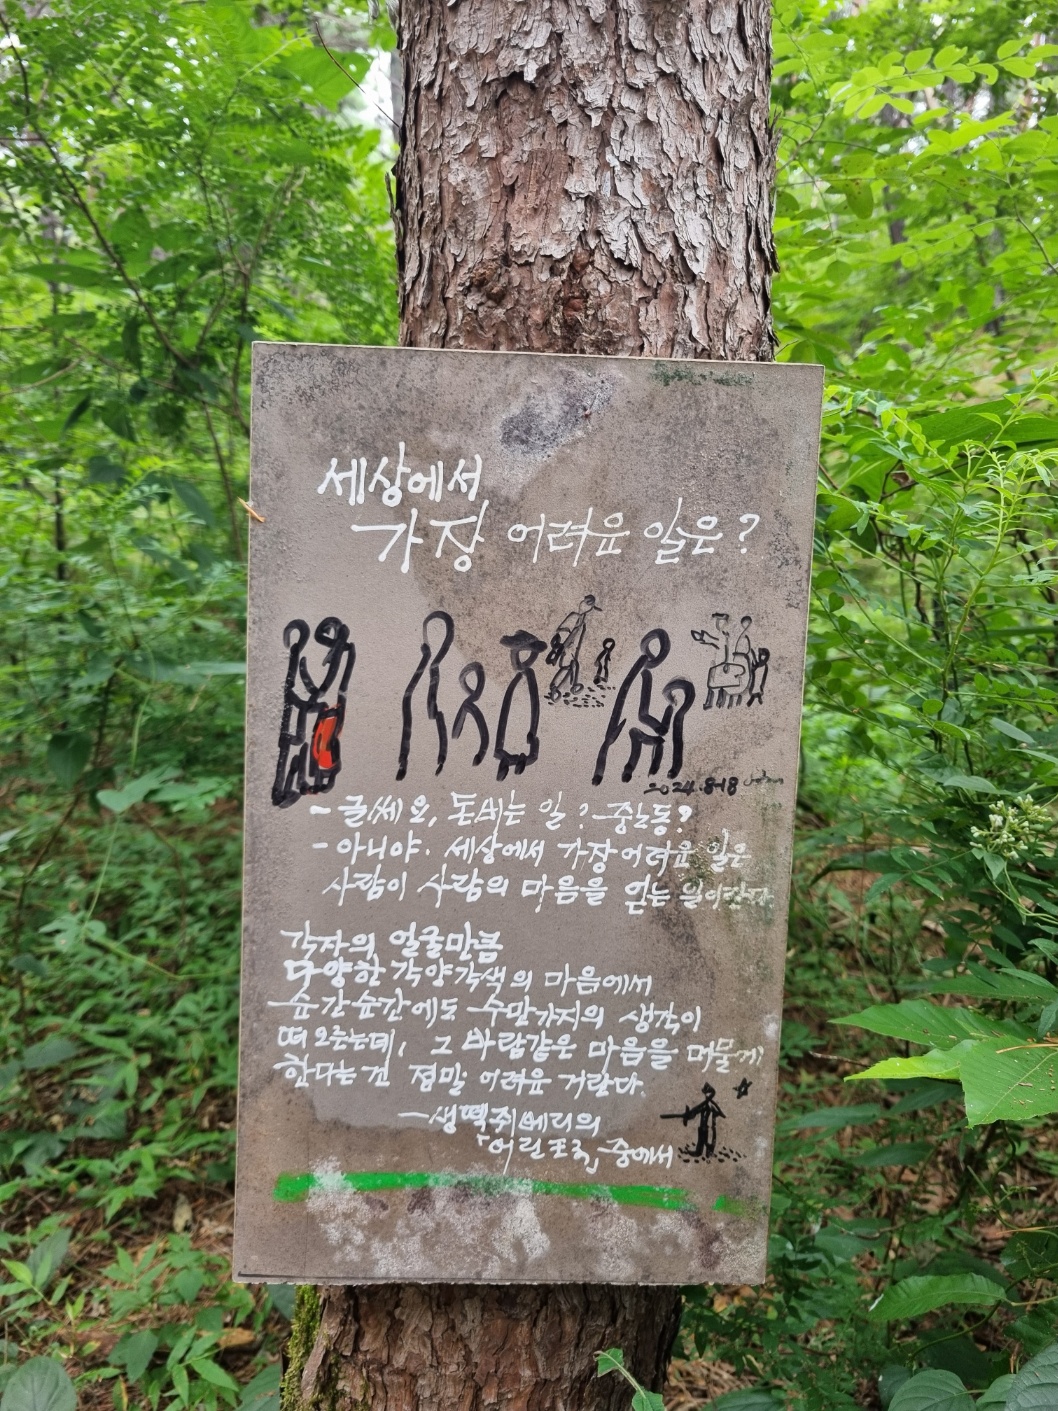 세상에서
가장 어려운 일은?
2024.8.18
-글쎄요, 돈버는 일? 중노동?
-아니야. 세상에서 가장 어려운 일은
사람이 사람의 마음을 얻는 일이란다.
각자의 얼굴만큼
다양한 각양각색의 마음에서
순간순간에도 수만가지의 생각이
떠오르는데, 그 바람같은 마음을 머물게
한다는건 정말 어려운 거란다.
-생떽쥐베리의
「어린 왕자」 중에서